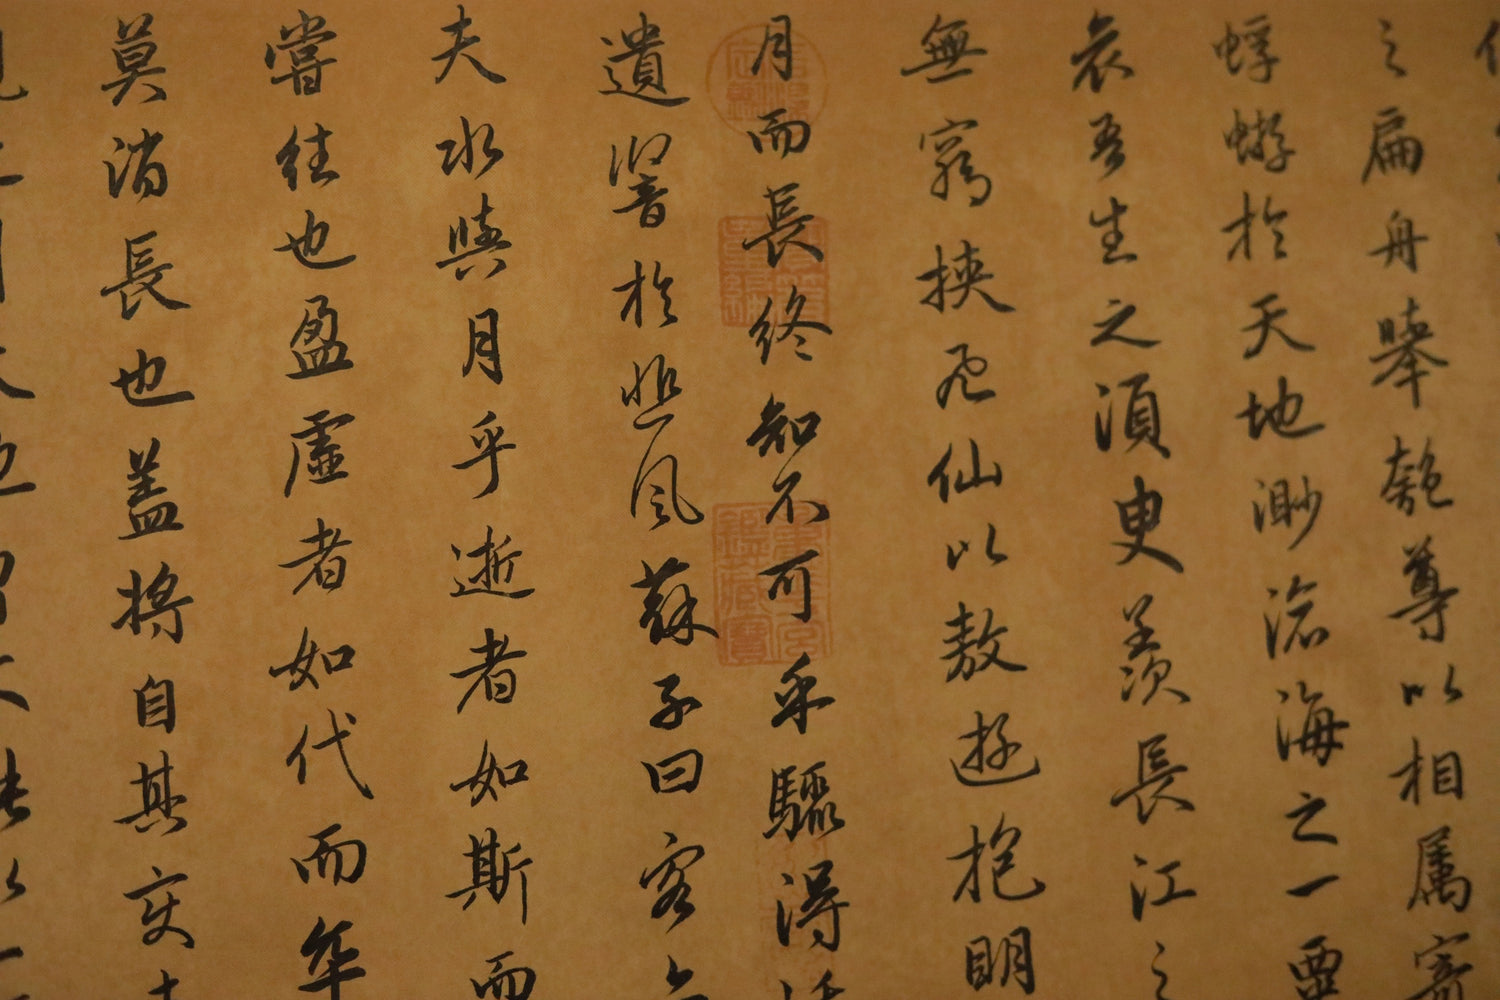 之扁舟舉匏尊以相属寄
蜉蝣於天地渺滄海之一粟
哀吾生之須臾羨長江之
無窮挾飛仙以敖遊抱明
月而長終知不可乎驟得
遺響於悲風蘇子曰客
夫水與月乎逝者如斯而
嘗往也盈虛者如代而卒
莫消長也蓋將自其变